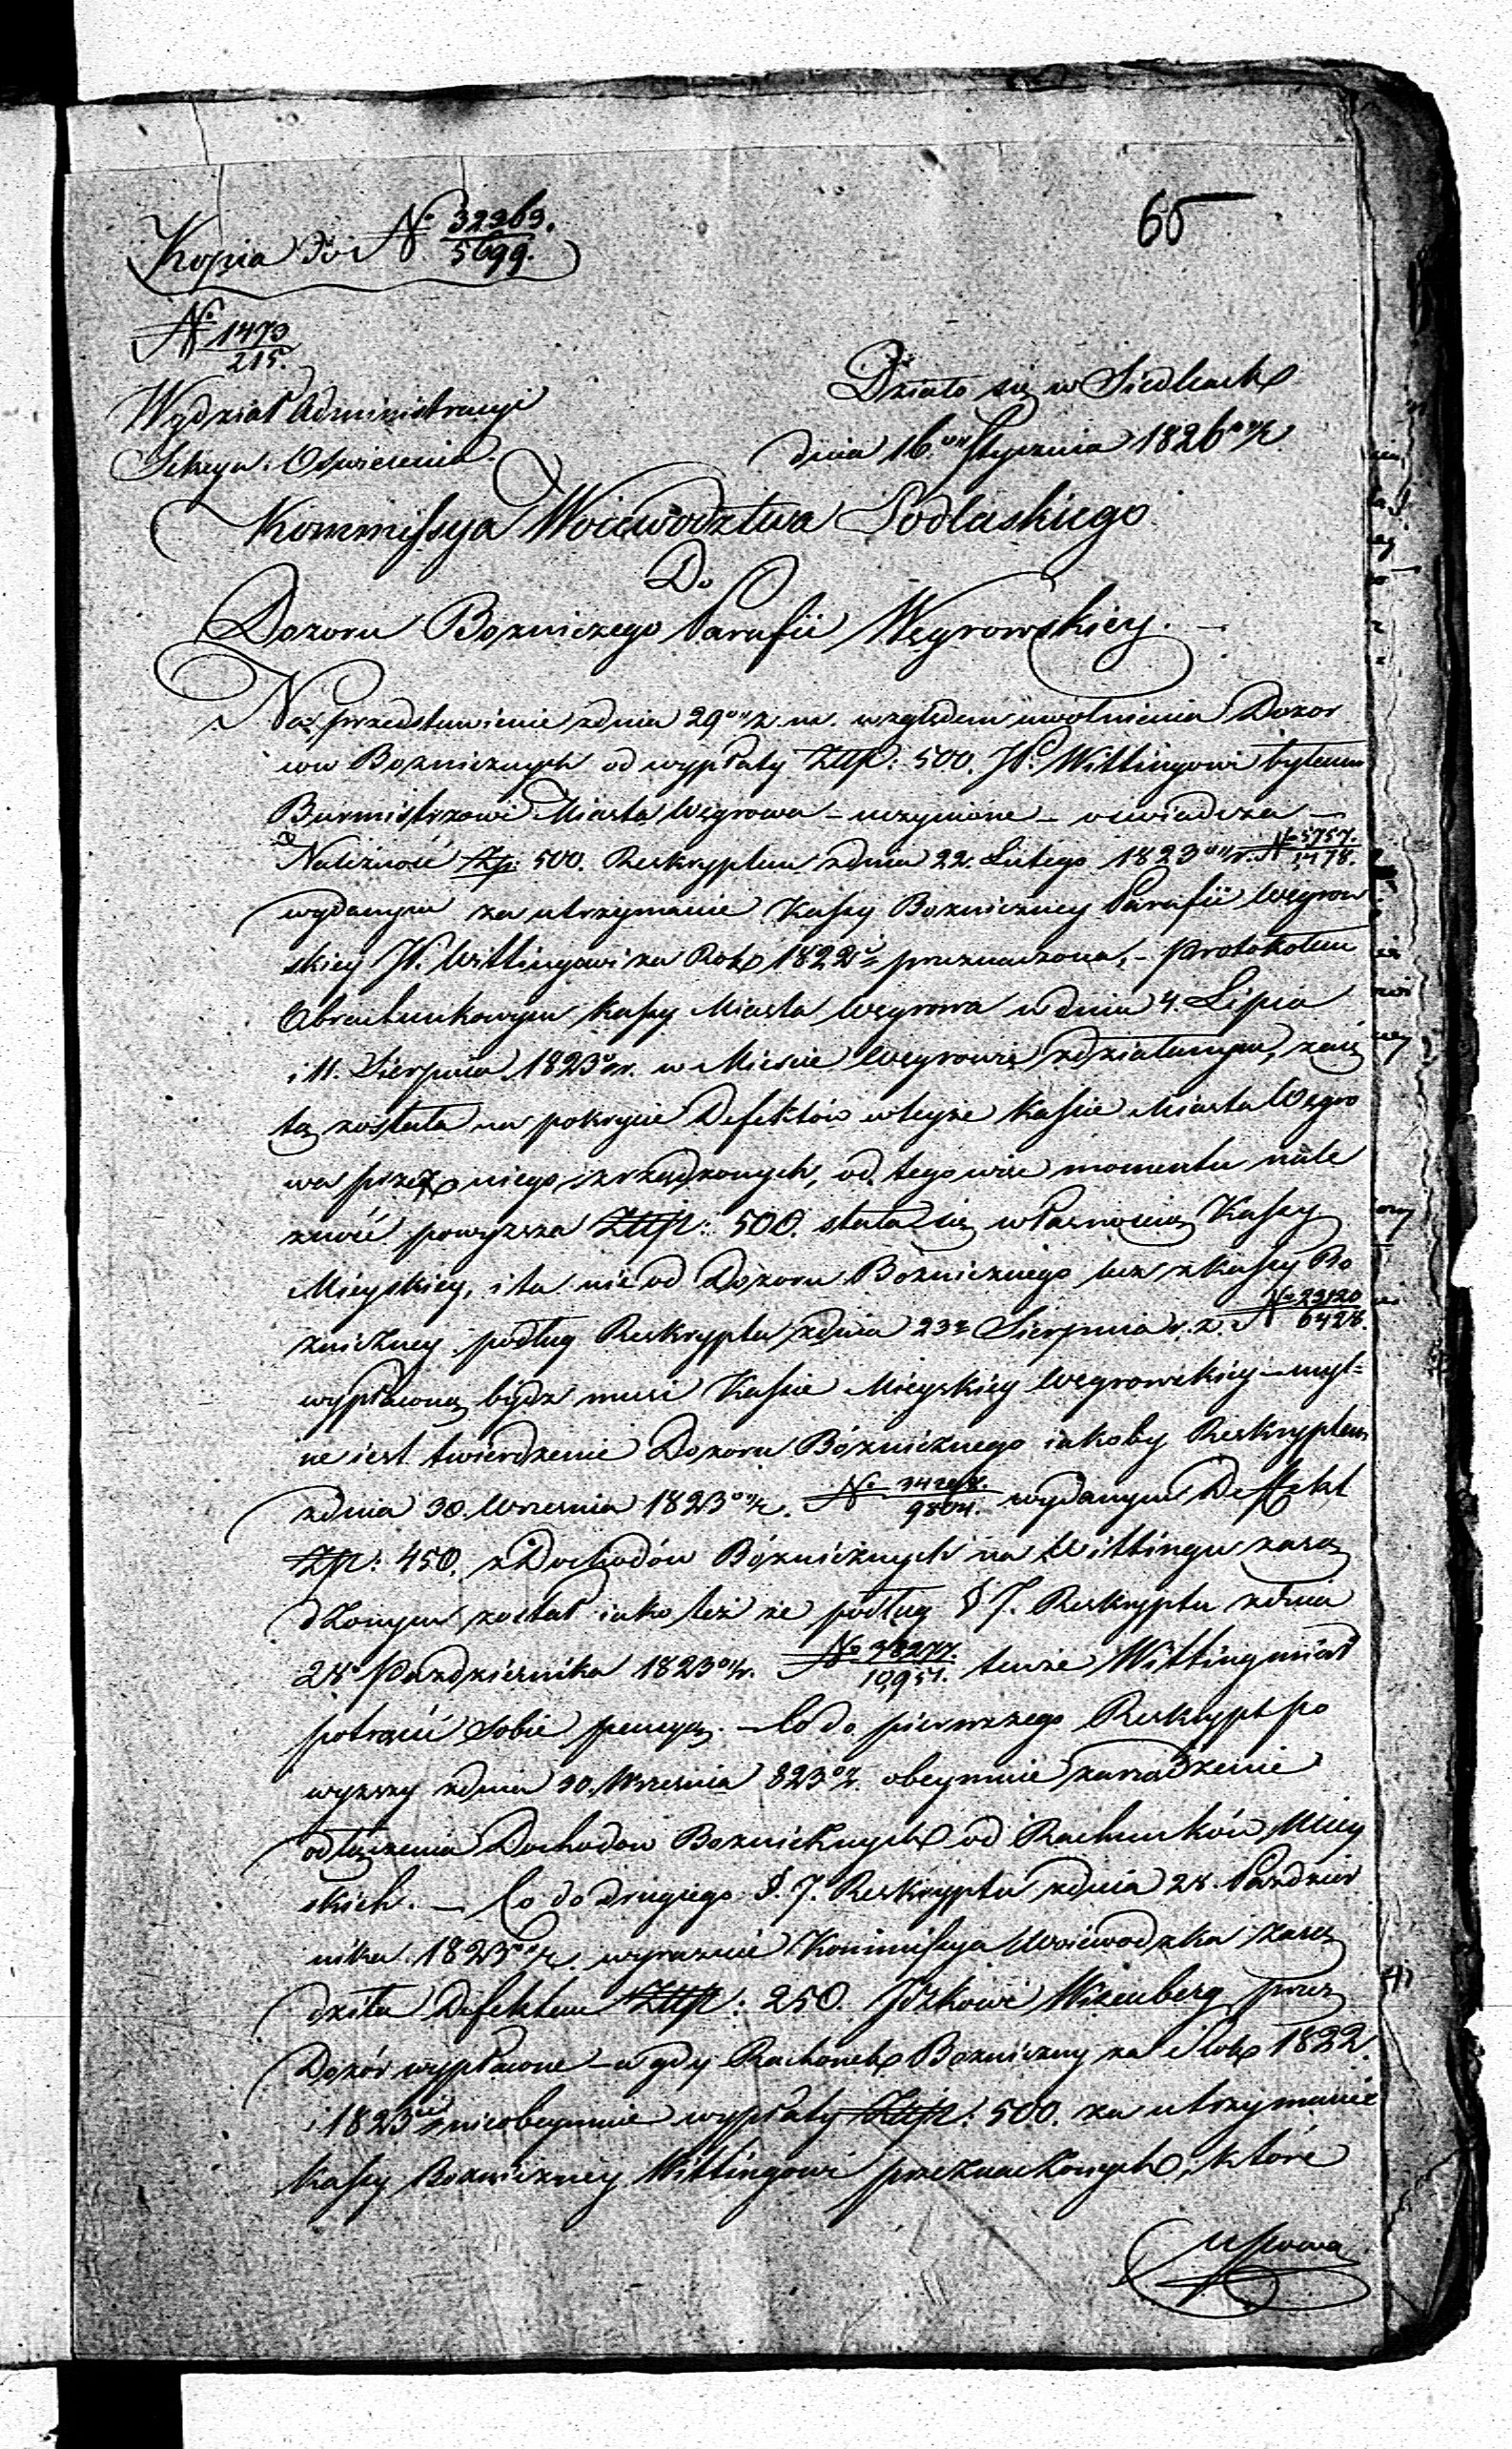 65
Kopia do № 32363.
5699.
№ 1473
215.
Działo się w Siedlcach
Wydział Administracyi
dnia 16go Stycznia 1826 r.
Sekcya Oswiecenia.
Kommissya Woiewodztwa Podlaskiego
Do
Dozoru Bozniczego Parafii Węgrowskiey.
Na przedstawienie z dnia 29 z. m. względem uwolnienia Dozor
ow Bozniczych od wypłaty Złłp: 500. JP. Wittingowi byłemu
Burmistrzowi Miasta Węgrowa – uczynione – oswiadcza –
Należność Złp. 500. Reskryptem z dnia 22. Lutego 1823 r. № 5757.
1478.
wydanym za utrzymanie Kassy Bozniczney Parafii Węgrow
skiey JP. Wittingowi za Rok 1822 przeznaczona, – Protokołem
Obrachunkowym Kassy Miasta Węgrowa w dniu 4. Lipca
i 11. Sierpnia 1823 r. w Miescie Węgrowie zdziałanym, zaię
tą została na pokrycie Defektów w teyże Kassie Miasta Węgro
wa przez niego zrządzonych, od tego więc momentu nale
zność powyzsza Złłp: 500. stała się własnością Kassy
Mieyskiey, i ta nie od Dozoru Bozniczego lecz z Kassy Bo
zniczney podług Reskryptu z dnia 23 Sierpnia r. z. № 23120
6428.
wypłaconą bydz musi Kassie Mieyskiey Węgrowskiey – myl=
ne iest twierdzenie Dozoru Bózniczego iakoby Reskryptem
z dnia 30. Wrzesnia 1823 r. №
9804. wydanym Deffekt
Złp: 450. z Dochodów Bózniczych na Wittingu zarą
dzonym został iako też że podług § 7. Reskryptu z dnia
28 Pazdziernika 1823 r. № 38277.
10,951. tenże Witting miał
potrącić sobie pensyą. – Co do pierwszego Reskrypt po
wyzszy z dnia 30. Wrzesnia 823 r. obeymuie zarządzenie
odłączenia Dochodow Bozniczych od Rachunków Miey
skich. – Co do drugiego §. 7. Reskryptu z dnia 28. Pazdzier
nika 1823 r. wyraznie Kommissya Woiewodzka zarzą
dziła Defektem Złłp: 250. Jckowi Wizenberg przez
Dozór wypłacone – a gdy Rachonek Bozniczny za Rok 1822.
i 1823 nieobeymuie wypłaty Złłp: 500. za utrzymanie
Kassy Bozniczney Wittingowi przeznaczonych, które